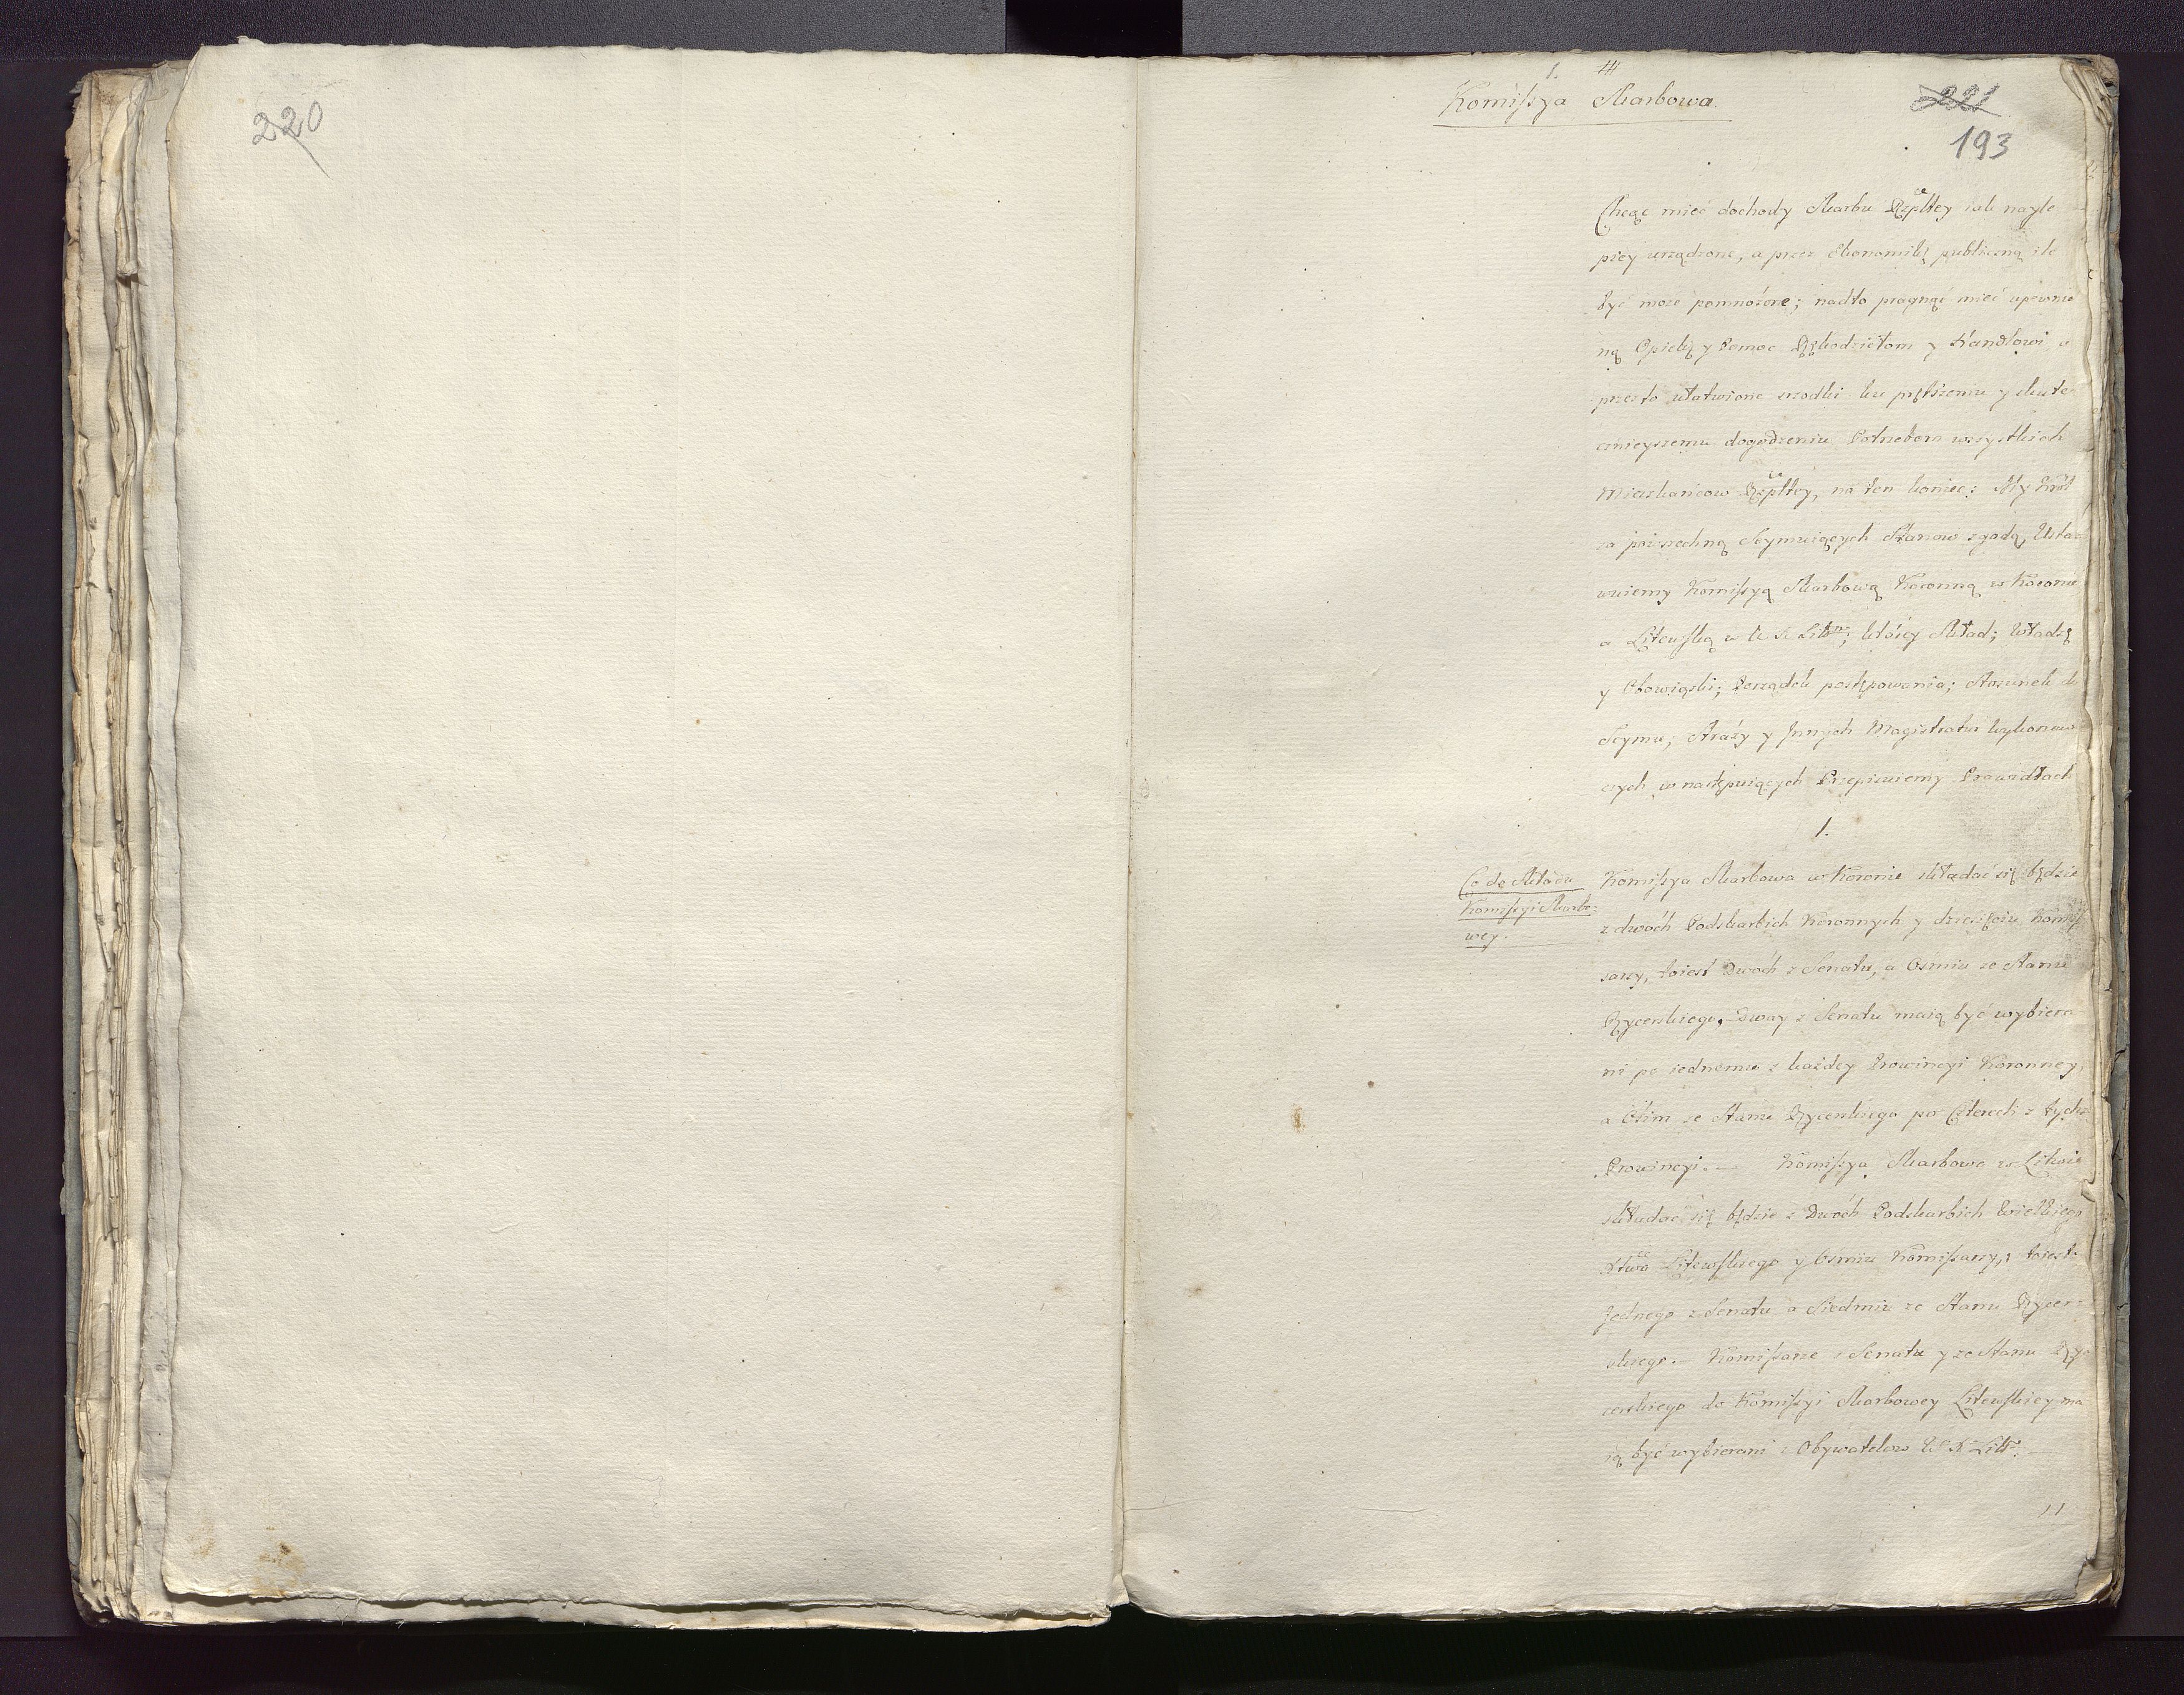 220
1. #
Komissya Skarbowa.
221
193
Chcąc mieć dochody Skarbu Rzpltey iak nayle
piey urządzone, a przez Ekonomikę publiczną ile
być może pomnożone; nadto pragnąc mieć upewnio
ną Opiekę y Pomoc Rękodziełom y Handlowi, a
przez to ułatwione srzodki ku prętszemu y skute
cznieyszemu dogodzeniu Potrzebom wszystkich
Mieszkańcow Rzpltey, na ten koniec: My Krol
za powszechną Seymuiących Stanow zgodą, Usta
wuiemy Komissyą Skarbową Koronną w Koronie
a Litewską w W. X. Litt:; ktorey Skład; Władzę
y Obowiązki; Porządek postępowania; Stosunek do
Seymu; Straży y Innych Magistratur Wykonaw
czych w następuiących Przepisuiemy Prawidłach
1.
Co do Składu
Komissyi Skarbo:
wey.
Komissya Skarbowa w Koronie składać się będzie
z dwóch Podskarbich Koronnych y dziesięciu Komis
sarzy, toiest Dwóch z Senatu, a Ośmiu ze Stanu
Rycerskiego. – Dway z Senatu maią być wybiera
ni po iednemu z każdey Prowincyi Koronney,
a Ośm ze Stanu Rycerskiego po Czterech z tychże
Prowincyi. – Komissya Skarbowa w Litwie
składać się będzie z Dwóch Podskarbich Wielkiego
Xtwa Litewskiego y Ośmiu Komissarzy, toiest:
Jednego z Senatu a Siedmiu ze Stanu Rycer
skiego. – Komissarze z Senatu y ze Stanu Ry
cerskiego do Komissyi Skarbowey Litewskiey ma
ią być wybierani z Obywatelow W. X. Litt:
11